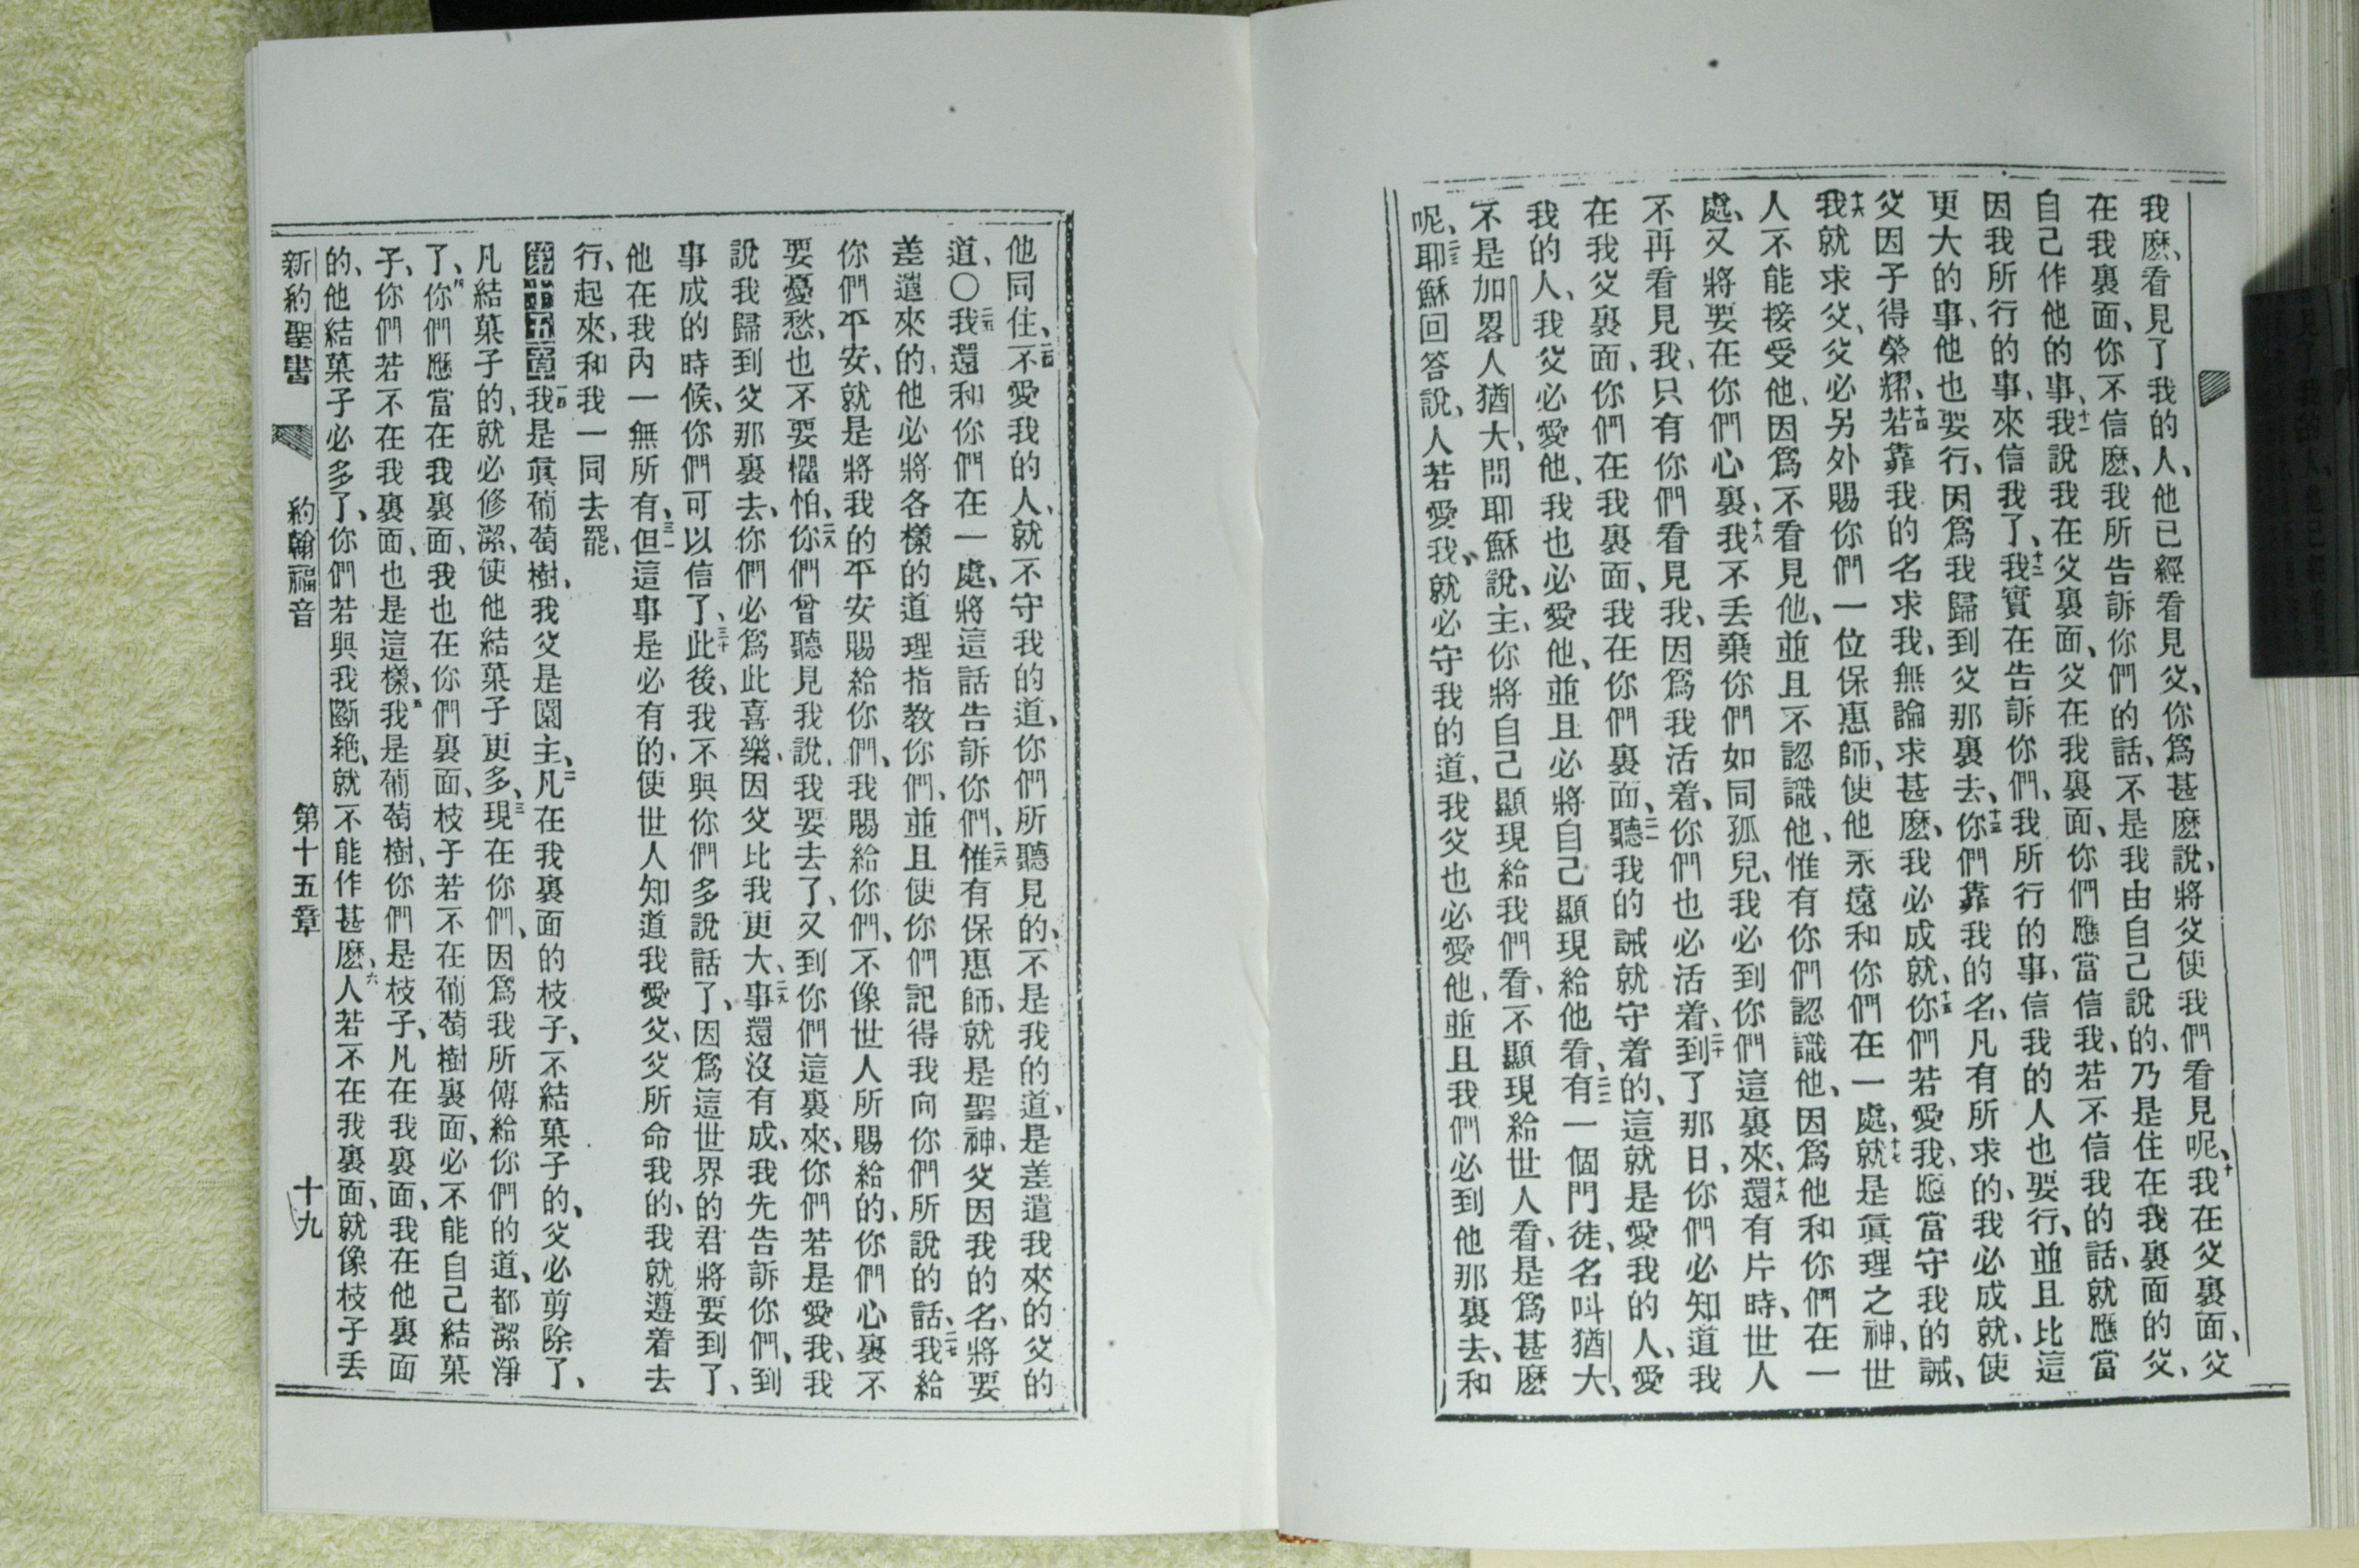 我麽、看見了我的人、他已經看見父、你爲甚麽說、將父使我們看見呢、十我在父裏面、父
在我裏面、你不信麽、我所告訴你們的話、不是我由自己說的、乃是住在我裏面的父、
自己作他的事、十一我說我在父裏面、父在我裏面、你們應當信我、若不信我的話、就應當
因我所行的事、來信我了、十二我實在告訴你們、我所行的事、信我的人也要行、並且比這
更大的事、他也要行、因爲我歸到父那裏去、十三你們靠我的名、凡有所求的、我必成就、使
父因子得榮耀、十四若靠我的名求我、無論求甚麽、我必成就、十五你們若愛我、應當守我的誡、
十六我就求父、父必另外賜你們一位保惠師、使他永遠和你們在一處、十七就是眞理之神、世
人不能接受他、因爲不看見他、並且不認識他、惟有你們認識他、因爲他和你們在一
處、又將要在你們心裏、十八我不丟棄你們如同孤兒、我必到你們這裏來、十九還有片時、世人
不再看見我、只有你們看見我、因爲我活着、你們也必活着、二十到了那日、你們必知道我
在我父裏面、你們在我裏面、我在你們裏面、二一聽我的誡就守着的、這就是愛我的人、愛
我的人、我父必愛他、我也必愛他、並且必將自己顯現給他看、二二有一個門徒、名叫猶大、
不是加畧人猶大、問耶穌說、主、你將自己顯現給我們看、不顯現給世人看、是爲甚麽
呢、二三耶穌回答說、人若愛我、就必守我的道、我父也必愛他、並且我們必到他那裏去、和
他同住、二四不愛我的人、就不守我的道、你們所聽見的、不是我的道、是差遣我來的父的
道、○二五我還和你們在一處、將這話告訴你們、二六惟有保惠師、就是聖神、父因我的名、將要
差遣來的、他必將各樣的道理指教你們、並且使你們記得我向你們所說的話、二七我給
你們平安、就是將我的平安賜給你們、我賜給你們、不像世人所賜給的、你們心裏不
要憂愁、也不要懼怕、二八你們曾聽見我說、我要去了、又到你們這裏來、你們若是愛我、我
說我歸到父那裏去、你們必爲此喜樂、因父比我更大、二九事還沒有成、我先告訴你們、到
事成的時候、你們可以信了、三十此後、我不與你們多說話了、因爲這世界的君將要到了、
他在我內一無所有、三一但這事是必有的、使世人知道我愛父、父所命我的、我就遵着去
行、起來、和我一同去罷、
第十五章一我是眞葡萄樹、我父是園主、二凡在我裏面的枝子、不結菓子的、父必剪除了、
凡結菓子的、就必修潔、使他結菓子更多、三現在你們、因爲我所傳給你們的道、都潔淨
了、四你們應當在我裏面、我也在你們裏面、枝子若不在葡萄樹裏面、必不能自己結菓
子、你們若不在我裏面、也是這樣、五我是葡萄樹、你們是枝子、凡在我裏面、我在他裏面
的、他結菓子必多了、你們若與我斷絶、就不能作甚麽、六人若不在我裏面、就像枝子丟
新約聖書 約翰福音 第十五章 十九